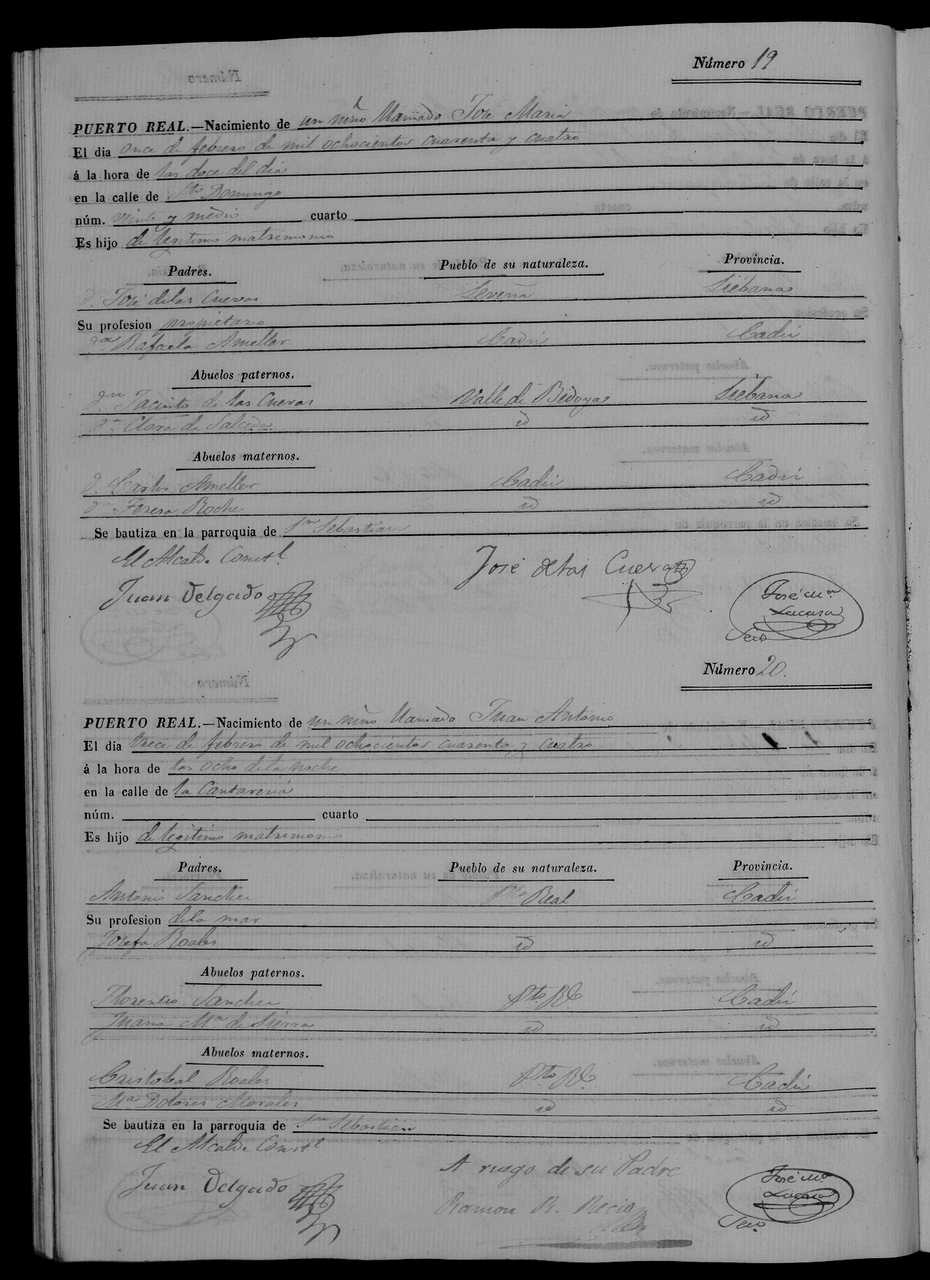 Número 19
PUERTO REAL.—Nacimiento de un niño llamado José Maria
El dia once de febrero de mil ochocientos cuarenta y cuatro
á la hora de las doce del dia
en la calle de Sto Domingo
núm. veinte y medio cuarto
Es hijo de legitimo matrimonio
Padres. Pueblo de su naturaleza. Provincia.
Dn José de las Cuevas Liébana
Su profesion propietario
Da Rafaela Ameller Cadiz Cadiz
Abuelos paternos.
Dn Jacinto de las Cuevas Valle de Bedoya Liébana
Da Clara de Salceda id id
Abuelos maternos.
Dn Carlos Ameller Cadiz Cadiz
Da Teresa Roche id id
Se bautiza en la parroquia de Sn Sebastian
El Alcalde Constl.
Juan Delgado José de las Cuevas José Ma Lacasa
Scio
Número 20.
PUERTO REAL.—Nacimiento de un niño llamado Juan Antonio
El dia trece de febrero de mil ochocientos cuarenta y cuatro
á la hora de las ocho de la noche
en la calle de la Cantareria
núm. cuarto
Es hijo de legitimo matrimonio
Padres. Pueblo de su naturaleza. Provincia.
Antonio Sanchez Pto Real Cadiz
Su profesion de la mar
Josefa Rosales id id
Abuelos paternos.
Florencio Sanchez Pto Rl Cadiz
Maria Ma de Sierra id id
Abuelos maternos.
Cristobal Rosales Pto Rl Cadiz
Ma Dolores Morales id id
Se bautiza en la parroquia de Sn Sebastian
El Alcalde Constl
A ruego de su Padre
Juan Delgado Ramon R. Recio José Ma Lacasa
Scio